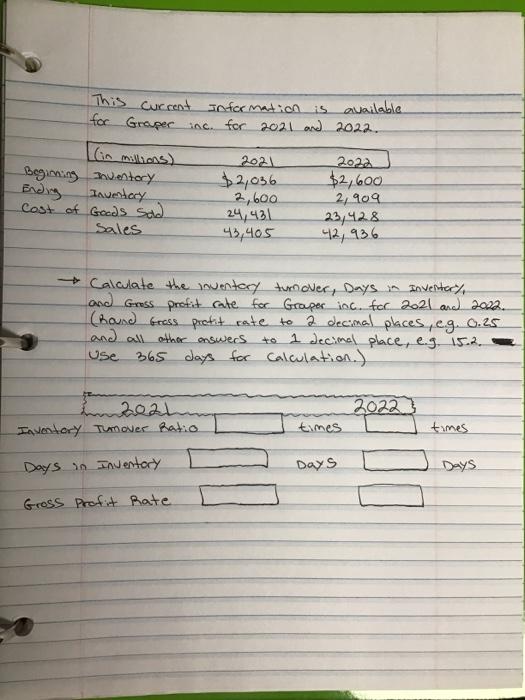 This current information is available
for Graper inc. for 2021 and 2022.
(in millions) 2021 2022
Beginning Inventory $2,036 $2,600
Ending Inventory 2,600 2,909
Cost of Goods Sold 24,431 23,428
Sales 43,405 42,936
→ Calculate the inventory turnover, Days in Inventory,
and Gross profit rate for Graper inc. for 2021 and 2022.
(Round Gross profit rate to 2 decimal places, e.g. 0.25
and all other answers to 1 decimal place, e.g. 15.2.
Use 365 days for calculation.)
2021 2022
Inventory Turnover Ratio times times
Days in Inventory Days Days
Gross Profit Rate